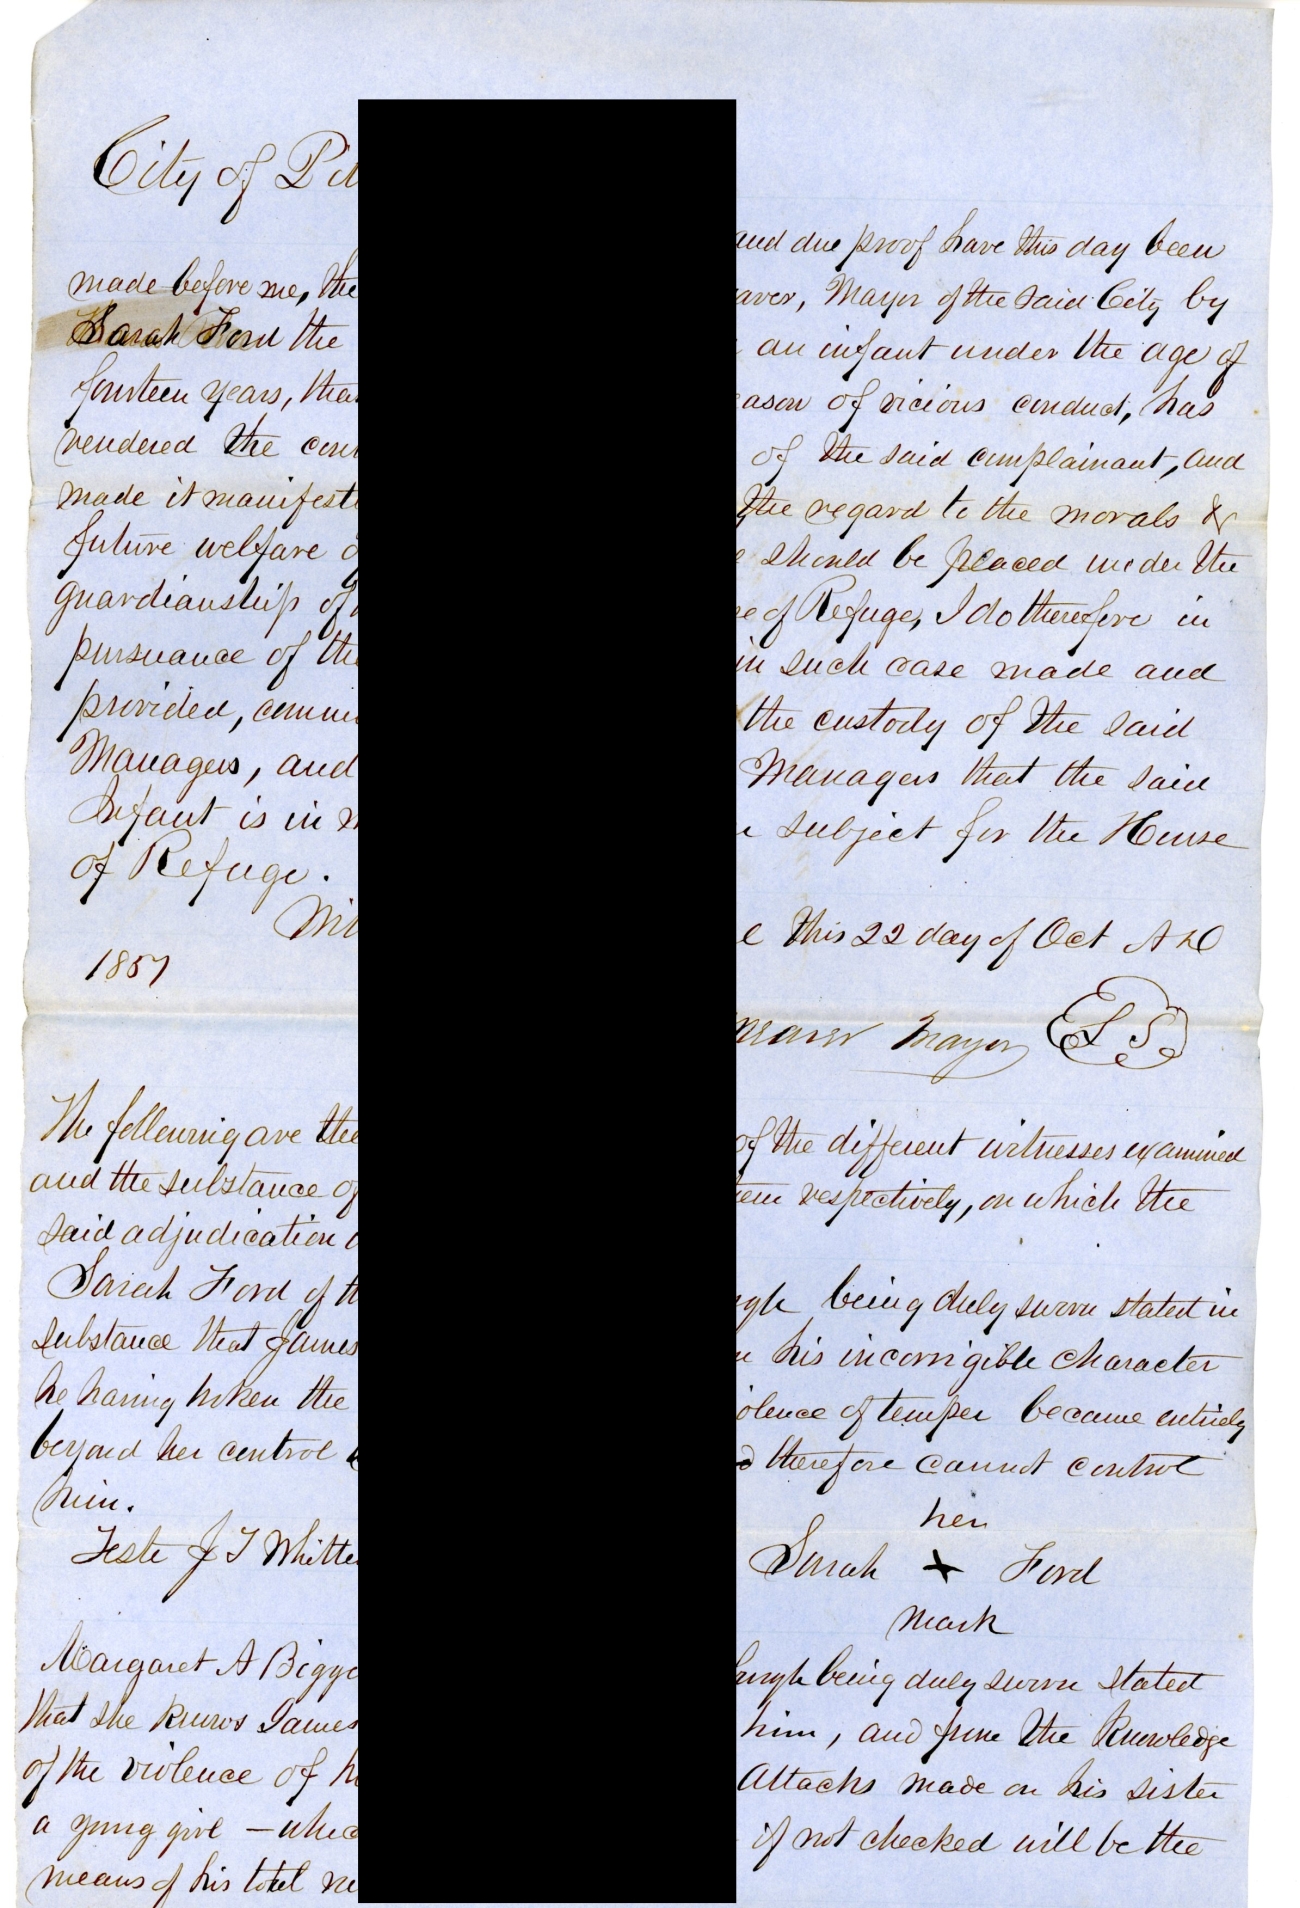 City of Pit
and due proof have this day been
made before me, the aver, Mayor of the said City by
Sarah Ford the an infant under the age of
fourteen years, that eason of vicious conduct, has
rendered the con of the said complainant, and
made it manifestl the regard to the morals &
future welfare o e should be placed under the
guardianship of se of Refuge, I do therefore in
pursuance of the in such case made and
provided, comm the custody of the said
Managers, and Managers that the said
Infant is in a subject for the House
of Refuge.
Wit l this 22 day of Oct A D
1857
eaver Mayor L S
The following are the of the different witnesses examined
and the substance of em respectively, on which the
said adjudication
Sarah Ford of th rgh being duly sworn stated in
substance that James his incorrigible character
he having broken the olence of temper became entirely
beyond her control d therefore cannot control
him.
her
Teste J T Whitte Sarah x Ford
mark
Margaret A Bigg burgh being duly sworn stated
that she knows James him, and from the knowledge
of the violence of h Attacks made on his sister
a young girl – whic if not checked will be the
means of his total